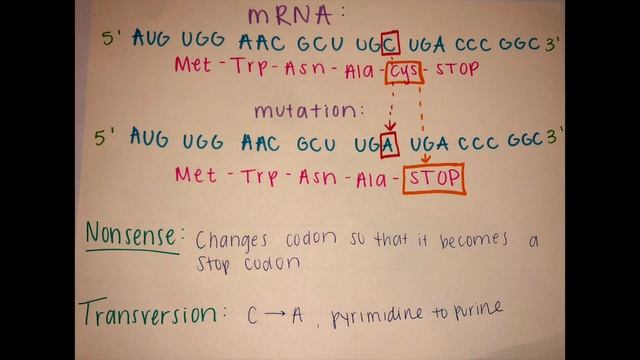 mRNA:
5' AUG UGG AAC GCU UGC UGA CCC GGC 3'
Met - Trp - Asn - Ala - Cys - STOP
mutation:
5' AUG UGG AAC GCU UGA UGA CCC GGC 3'
Met - Trp - Asn - Ala - STOP
Nonsense: Changes codon so that it becomes a
stop codon
Transversion: C → A, pyrimidine to purine